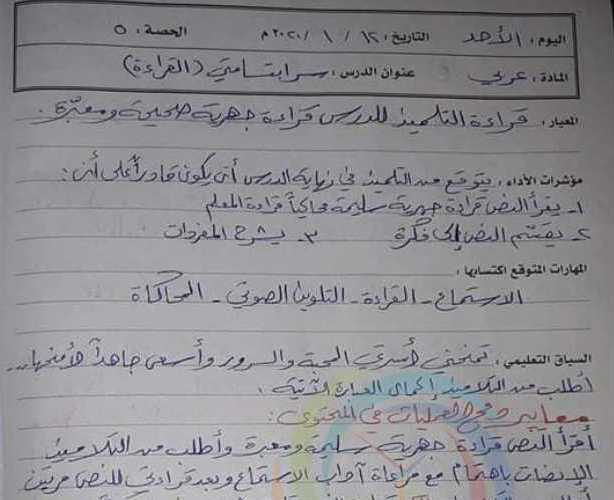 اليوم : الأحد التاريخ : ١٢ / ١ / ٢٠٢٠ م الحصة : ٥
المادة : عربي عنوان الدرس : سر ابتسامتي (القراءة)
المعيار : قراءة التلميذ للدرس قراءة جهرية صحيحة ومعبّرة .
مؤشرات الأداء : يتوقع من التلميذ في نهاية الدرس أن يكون قادراً على أن :
١- يقرأ النص قراءة جهرية سليمة محاكياً قراءة المعلم
٢- يقسّم النص إلى فكرة ٣- يشرح المفردات
المهارات المتوقع اكتسابها :
الاستماع - القراءة - التلوين الصوتي - المحاكاة
السياق التعليمي : تمنحني أسرتي المحبة والسرور وأسعى جاهداً لأمنحها...
أطلب من التلاميذ إكمال العبارة الآتية .
معايير دمج العمليات في المحتوى :
أقرأ النص قراءة جهرية سليمة ومعبرة وأطلب من التلاميذ
الإنصات باهتمام مع مراعاة آداب الاستماع وبعد قراءتي للنص مرتين